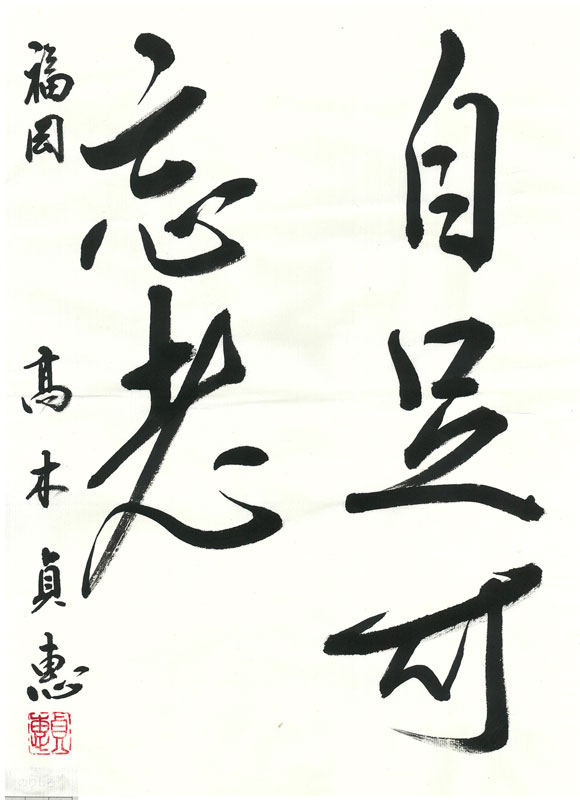 自足可
忘老
福岡 高木貞惠
貞惠